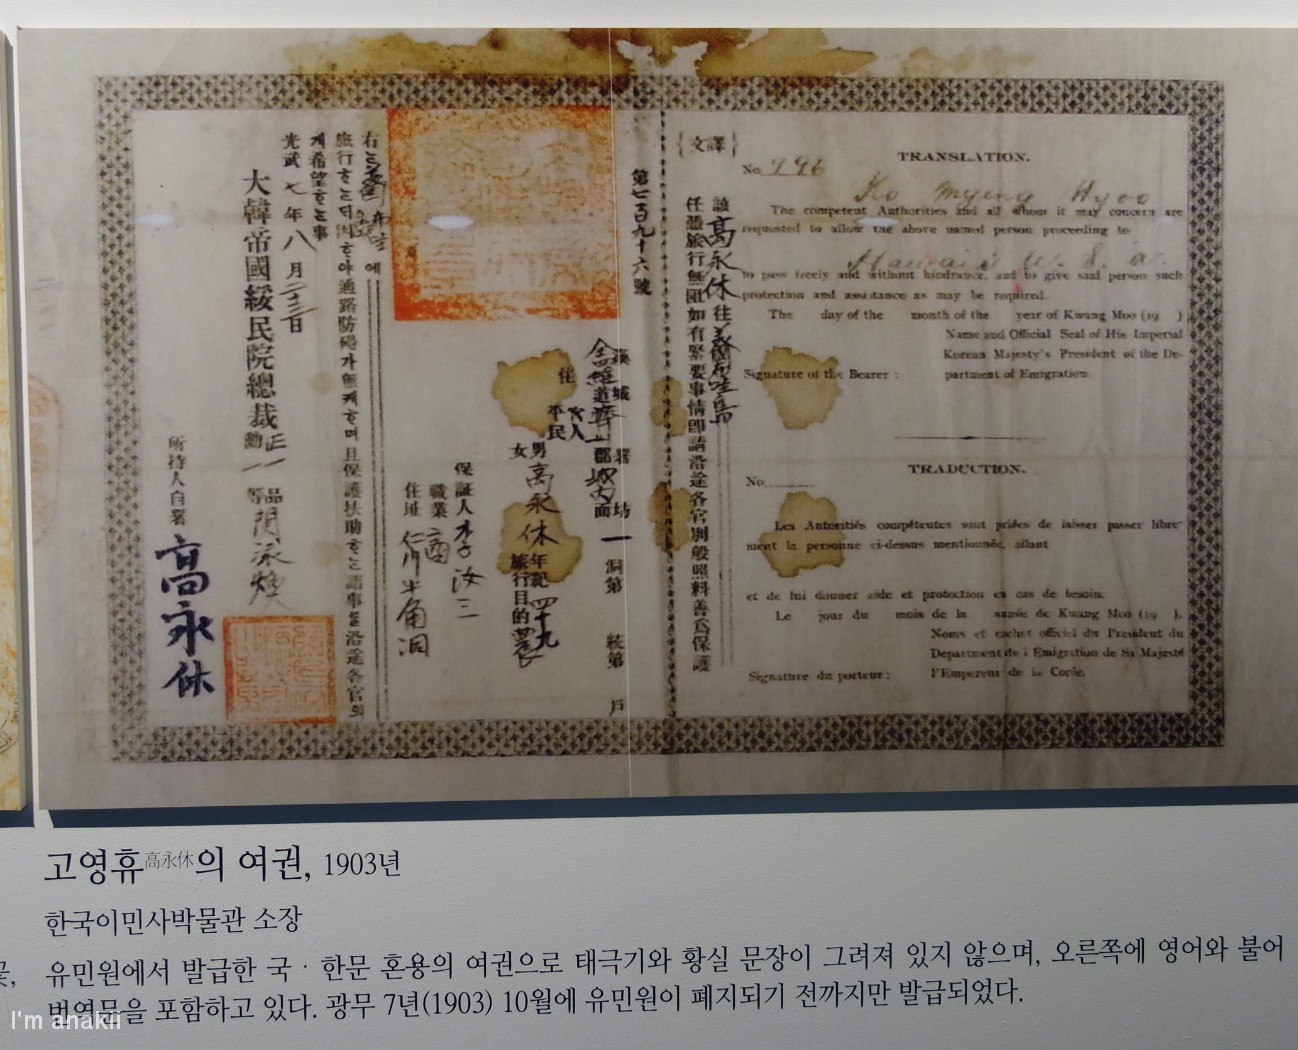 {譯文}
No. 796
TRANSLATION.
Ko Myeng Hyoo
The competent Authorities and all whom it may concern are
requested to allow the above named person proceeding to
Hawaii U. S. a.
to pass freely and without hindrance, and to give said person such
protection and assistance as may be required.
The day of the month of the year of Kwang Moo (19 ).
Name and Official Seal of His Imperial
Korean Majesty's President of the De-
partment of Emigration.
Signature of the Bearer :
TRADUCTION.
No.
Les Autorités compétentes sont priées de laisser passer libre-
ment la personne ci-dessus mentionnée, allant
et de lui donner aide et protection en cas de besoin.
Le jour du mois de la année de Kwang Moo (19 ).
Noms et cachet officiel du Président du
Department de l'Emigration de Sa Majesté
l'Empereur de la Corée.
Signature du porteur :
該高永休往美國布哇島
任憑旅行無阻如有緊要事情卽請沿途各官別般照料善爲保護
第七百九十六號
漢城 署 坊 洞第 統第 戶
住 道 郡 城內面 一
官人
平民
男
女
高永休
年紀四十九
旅行目的農
保証人李汝三
職業商
住址仁川半角洞
旅行ᄒᆞᄂᆞᆫ디 因ᄒᆞ야 通路防碍가 無케ᄒᆞ며 且保護扶助ᄒᆞᄂᆞᆫ 諸事를 沿途各官의
게 希望ᄒᆞᄂᆞᆫ事
光武七年八月二十三日
大韓帝國綏民院總裁正一品勳一等閔泳煥
所持人自署
高永休
고영휴高永休의 여권, 1903년
한국이민사박물관 소장
유민원에서 발급한 국 · 한문 혼용의 여권으로 태극기와 황실 문장이 그려져 있지 않으며, 오른쪽에 영어와 불어
번역문을 포함하고 있다. 광무 7년(1903) 10월에 유민원이 폐지되기 전까지만 발급되었다.
꽃,
I'm anakii